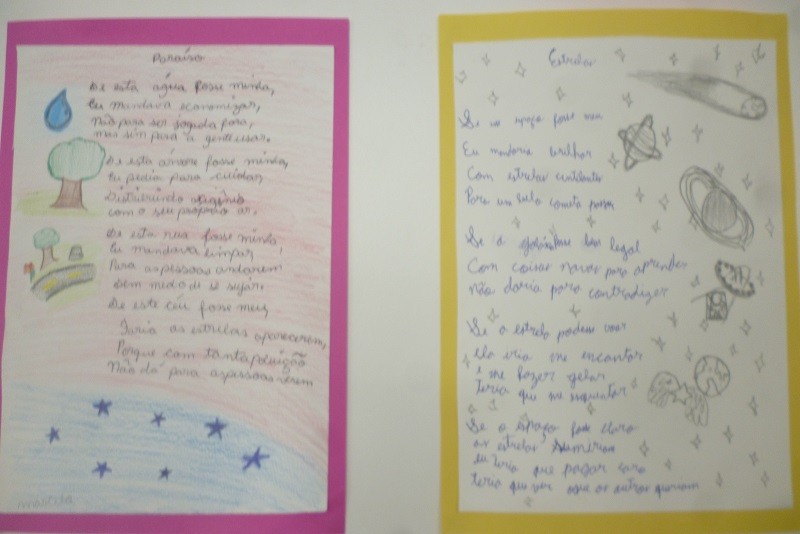 Paraíso
Se esta água fosse minha,
Eu mandava economizar,
Não para ser jogada fora,
mas sim para a gente usar.
Se esta árvore fosse minha,
Eu pedia para cuidar,
Distribuindo oxigênio
com o seu próprio ar.
Se esta rua fosse minha
Eu mandava limpar!
Para as pessoas andarem
Sem medo de se sujar.
Se este céu fosse meu,
Faria as estrelas aparecerem,
Porque com tanta poluição
Não dá para as pessoas verem
Estrelas
Se o espaço fosse meu
Eu mandaria brilhar
Com estrelas cintilantes
Para um belo cometa passar
Se a fosse bem legal
Com coisas novas para aprender
Não daria para contradizer
Se a estrela podem voar
Ela iria me encantar
e me fazer gelar
Teria que me esquentar
Se o espaço fosse claro
as estrelas sumiriam
eu teria que pagar caro
teria que ver o que os outros queriam